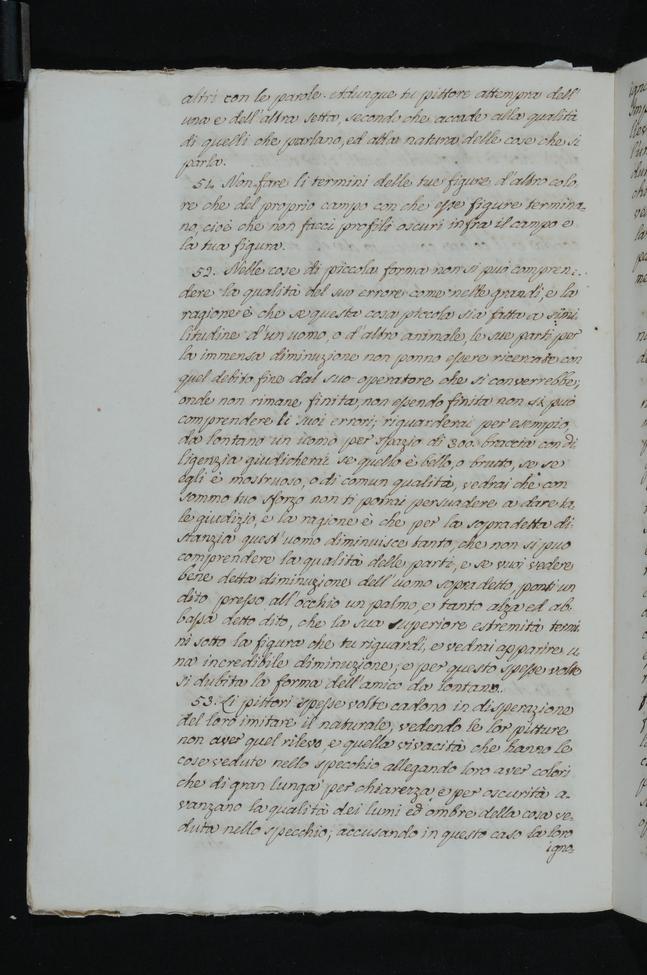 altri con le parole. Adunque tu pittore attempra dell'
una e dell'altra setta, secondo che accade alla qualità
di quelli che parlano, ed alla natura delle cose che si
parla.
51. Non fare li termini delle tue figure d'altro colo,
re che del proprio campo con che esse figure termina,
no, cioè che non facci profili oscuri infra il campo e
la tua figura.
52. Nelle cose di piccola forma non si può compren,
dere la qualità del suo errore come nelle grandi, e la
ragione è che se questa cosa piccola sia fatta a simi
litudine d'un uomo, o d'altro animale, le sue parti per
la immensa diminuzione non ponno essere ricercate con
quel debito fine dal suo operatore che si converrebbe;
onde non rimane finita, non essendo finita non si può
comprendere li suoi errori; riguarderai per esempio
da lontano un uomo per spazio di 300. braccia con di
ligenzia giudicherai se quello è bello, o brutto, se se
egli è mostruoso, o di comun qualità, vedrai che con
sommo tuo sforzo non ti potrai persuadere a dare ta,
le giudizio, e la ragione è che per la sopradetta di
stanzia quest'uomo diminuisce tanto, che non si può
comprendere la qualità delle parti, e se vuoi vedere
bene detta diminuzione dell'uomo sopradetto, ponti un
dito presso all'occhio un palmo, e tanto alza ed ab,
bassa detto dito, che la sua superiore estremità termi,
ni sotto la figura che tu riguardi, e vedrai apparire u
na incredibile diminuzione; e per questo spesse volte
si dubita la forma dell'amico da lontano.
53. Li pittori spesse volte cadono in disperazione
del loro imitare il naturale, vedendo le lor pitture
non aver quel rilevo, e quella vivacità che hanno le
cose vedute nello specchio allegando loro aver colori
che di gran lunga per chiarezza e per oscurità a,
vanzano la qualità dei lumi ed ombre della cosa ve,
duta nello specchio; accusando in questo caso la loro
igno,